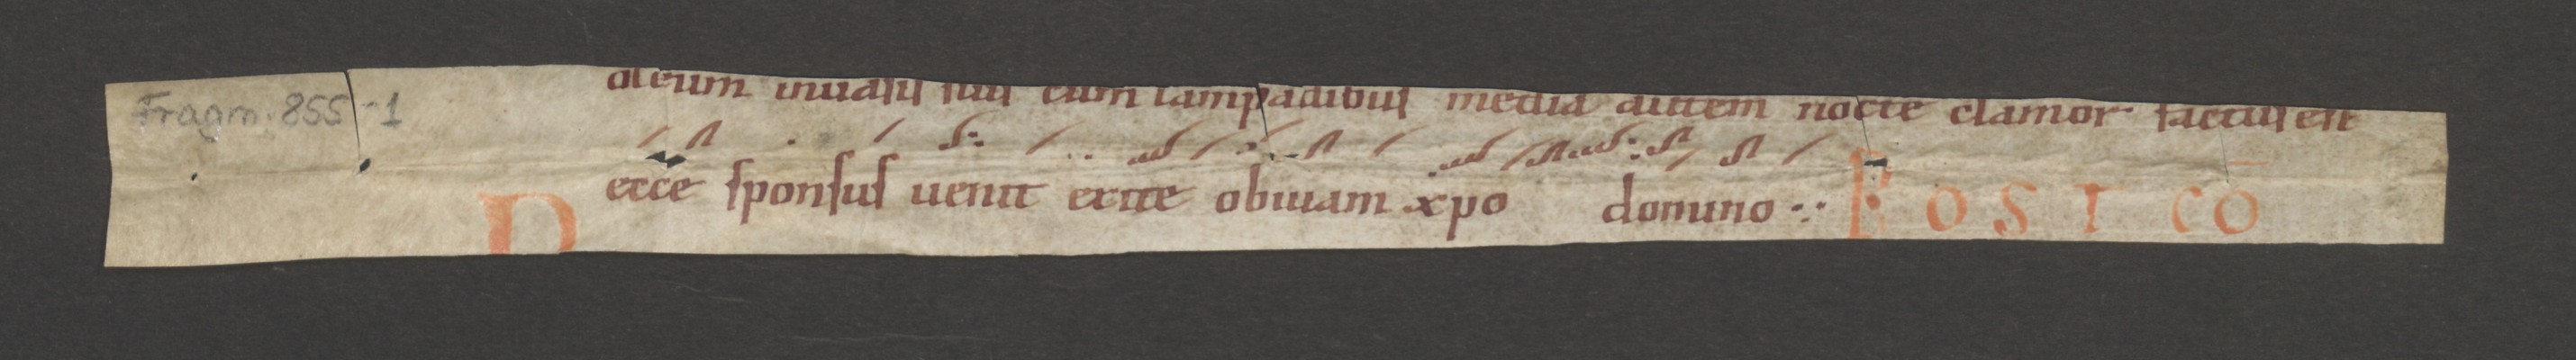 Fragm. 855-1
oleum inuasis suis cum lampadibus media autem nocte clamor factus est
ecce sponsus uenit exite obuiam xpo domino
D
POST CŌ